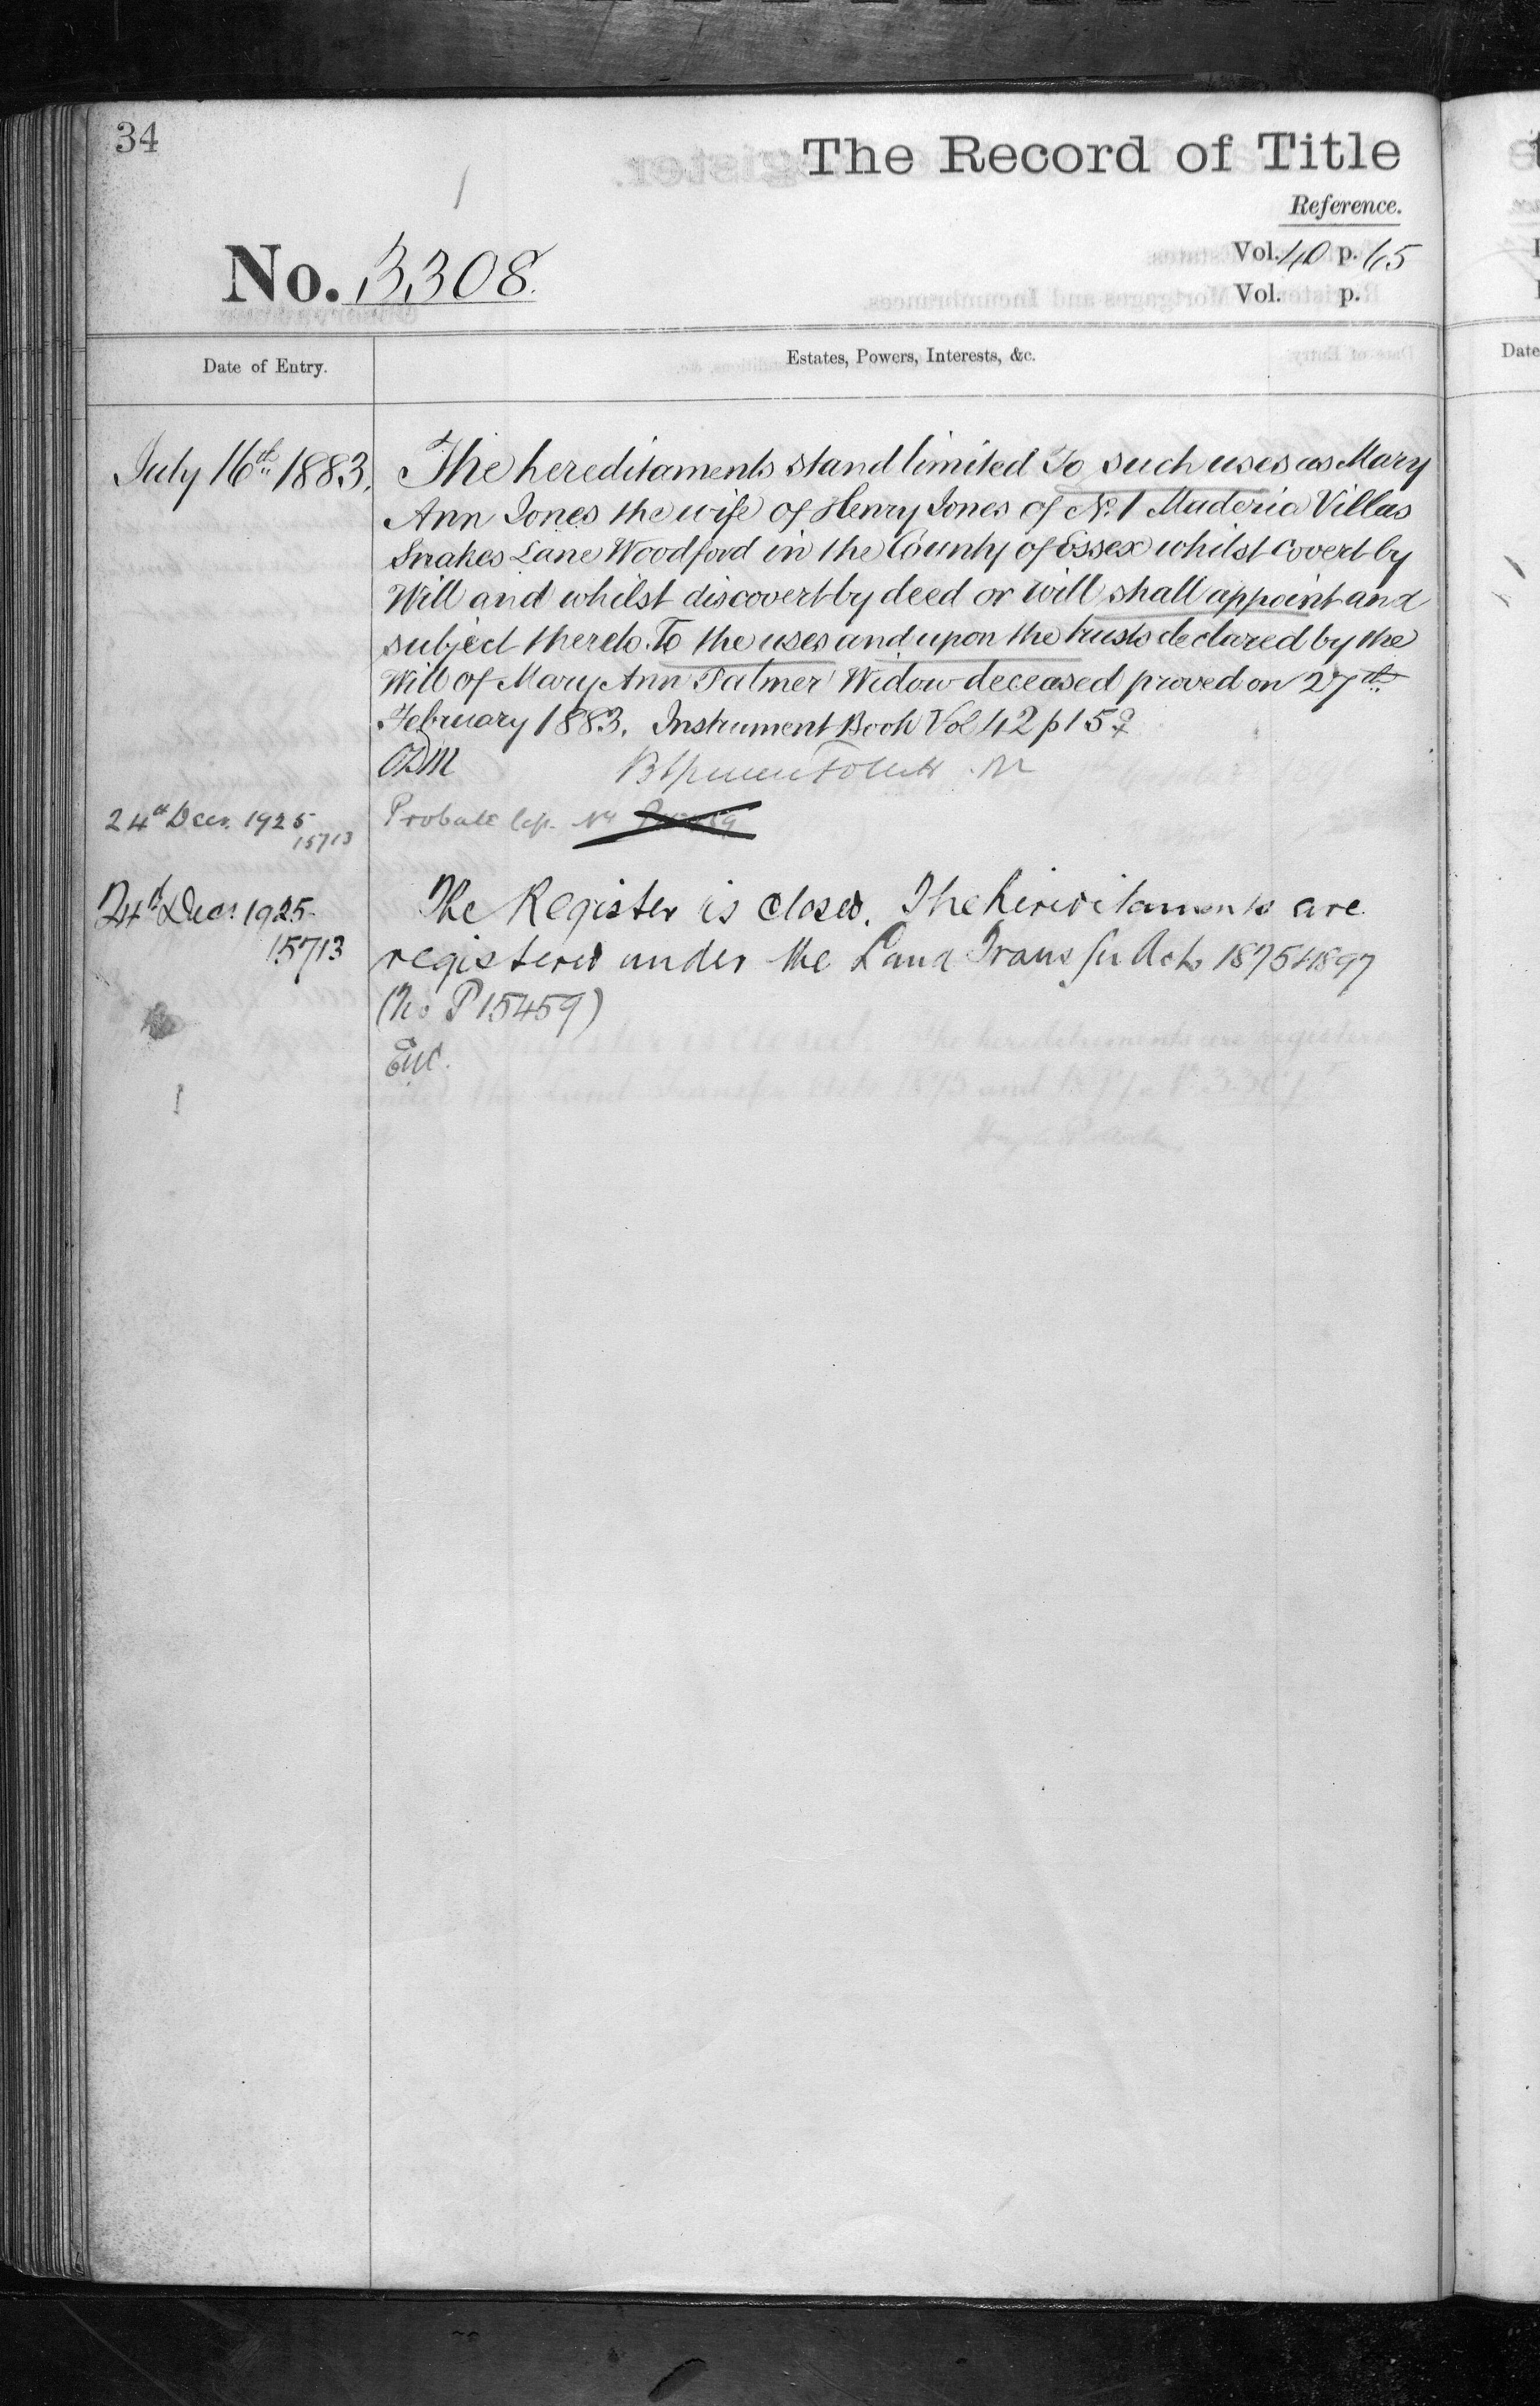 34
The Record of Title
Reference.
No. 3308.
Vol. 40 p. 65
Vol. p.
Date of Entry.
Estates, Powers, Interests, &c.
July 16th 1883. The hereditaments stand limited To such uses as Mary
Ann Jones the wife of Henry Jones of No. 1 Maderia Villas
Snakes Lane Woodford in the County of Essex whilst covert by
Will and whilst discovert by deed or will shall appoint and
subject thereto. To the uses and upon the trusts declared by the
Will of Mary Ann Palmer Widow deceased proved on 27th
February 1883. Instrument Book Vol 42 p 15
24th Decr. 1925 Probate
15713
24th Decr. 1925. The Register is closed. The hereditaments are
15713 registered under the Land Transfer Acts 1875 & 1897
(No P15459)